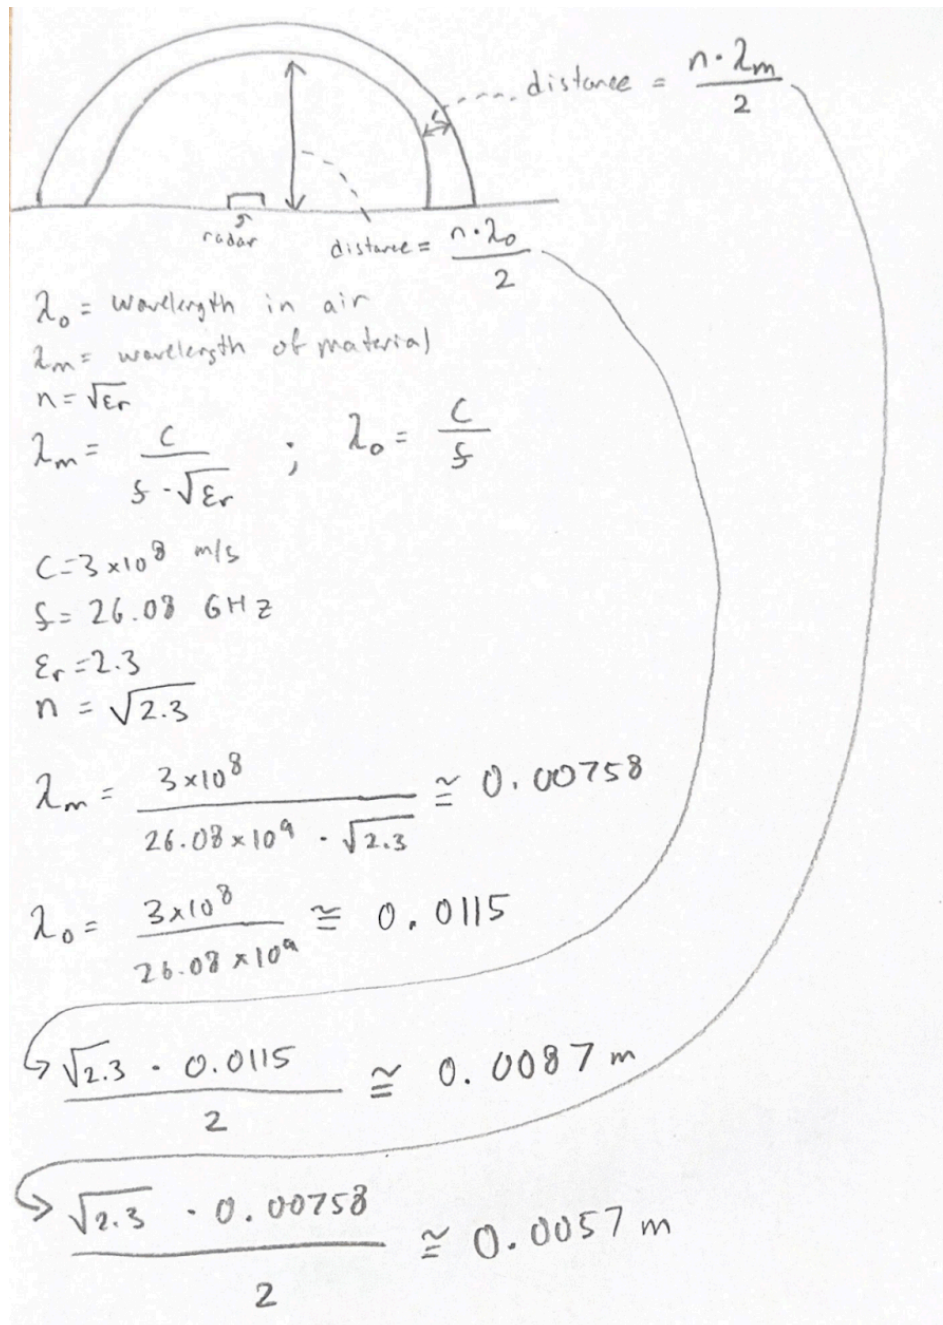 distance = n·λm / 2
radar
distance = n·λo / 2
λo = wavelength in air
λm = wavelength of material
n = √εr
λm = c / f·√εr ; λo = c / f
C=3×10⁸ m/s
f = 26.08 GHz
εr = 2.3
n = √2.3
λm = 3×10⁸ / 26.08×10⁹ · √2.3 ≅ 0.00758
λo = 3×10⁸ / 26.08×10⁹ ≅ 0.0115
√2.3 · 0.0115 / 2 ≅ 0.0087 m
√2.3 · 0.00758 / 2 ≅ 0.0057 m